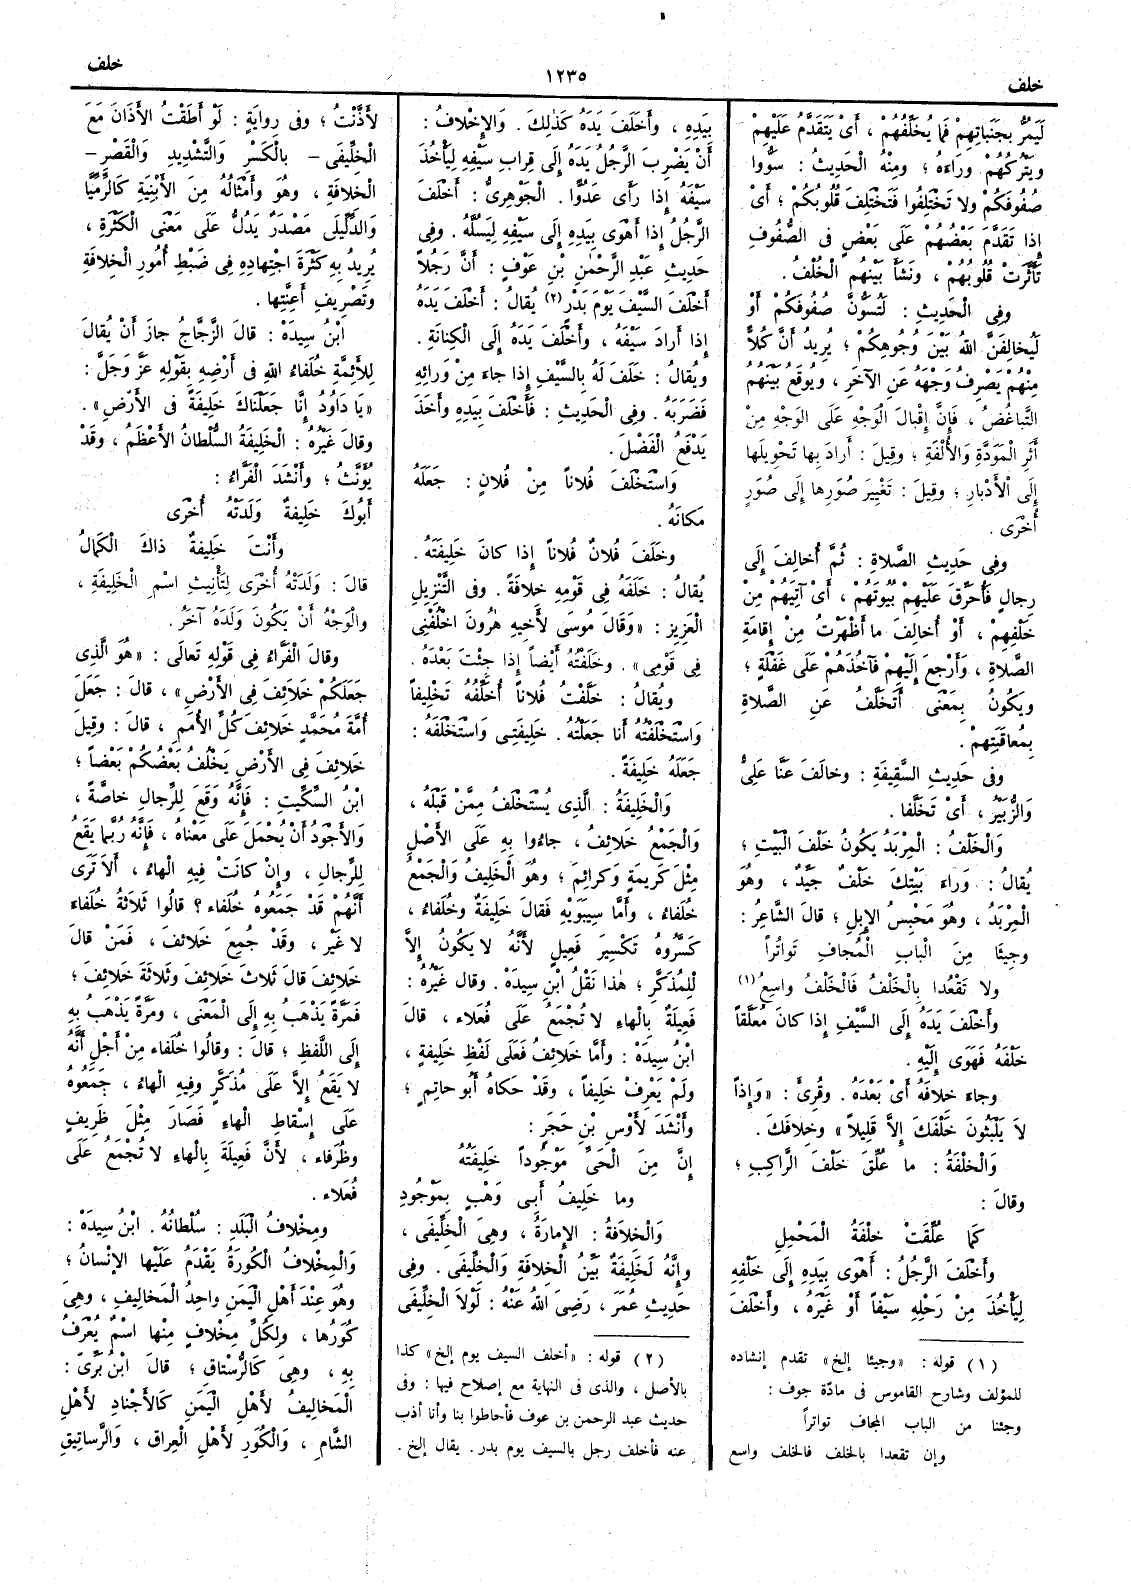 خلف
١٢٣٥
خلف
لَيَمُرُّ بِجَنَباتِهِمْ فَما يُخَلِّفُهُمْ ، أَىْ يَتَقَدَّمُ عَلَيْهِمْ
وَيَتْرُكُهُمْ وراءَهُ ؛ ومِنْهُ الْحَدِيثُ : سَوُّوا
صُفُوفَكُمْ ولا تَخْتَلِفُوا فَتَخْتَلِفَ قُلُوبُكُمْ ؛ أَىْ
إِذا تَقَدَّمَ بَعْضُهُمْ عَلَى بَعْضٍ فى الصُّفُوفِ
تَأَثَّرَتْ قُلُوبُهُمْ ، ونَشَأَ بَيْنَهُم الْخُلْفُ .
وفِى الْحَدِيثِ : لَتُسَوُّنَّ صُفُوفَكُمْ أَوْ
لَيُخالِفَنَّ اللهُ بَيْنَ وُجُوهِكُمْ ؛ يُرِيدُ أَنَّ كُلاًّ
مِنْهُمْ يَصْرِفُ وَجْهَهُ عَنِ الآخَرِ ، ويُوقَعُ بَيْنَهُمُ
التَّباغُضُ ، فَإِنَّ إِقْبالَ الْوَجْهِ عَلَى الْوَجْهِ مِنْ
أَثَرِ الْمَوَدَّةِ وَالأُلْفَةِ ؛ وقِيلَ : أَرادَ بِها تَحْوِيلَها
إِلَى الأَدْبارِ ؛ وقِيلَ : تَغْيِيرَ صُوَرِها إِلَى صُوَرٍ
أُخْرَى .
وفِى حَدِيثِ الصَّلاةِ : ثُمَّ أُخالِفَ إِلَى
رِجالٍ فَأُحَرِّقَ عَلَيْهِمْ بُيُوتَهُمْ ، أَىْ آتِيَهُمْ مِنْ
خَلْفِهِمْ ، أَوْ أُخالِفَ ما أَظْهَرْتُ مِنْ إِقامَةِ
الصَّلاةِ ، وَأَرْجِعَ إِلَيْهِمْ فَآخُذَهُمْ عَلَى غَفْلَةٍ ؛
ويَكُونُ بِمَعْنَى أَتَخَلَّفُ عَنِ الصَّلاةِ
بِمُعاقَبَتِهِمْ .
وفى حَدِيثِ السَّقِيفَةِ : وخالَفَ عَنَّا عَلِىٌّ
وَالزُّبَيْرُ ، أَىْ تَخَلَّفا .
وَالْخَلْفُ : الْمِرْبَدُ يَكُونُ خَلْفَ الْبَيْتِ ؛
يُقالُ : وَراءَ بَيْتِكَ خَلْفٌ جَيِّدٌ ، وهُوَ
الْمِرْبَدُ ، وهُوَ مَحْبِسُ الإِبِلِ ؛ قالَ الشَّاعِرُ :
وجِيئا مِنَ الْبابِ الْمُجافِ تَواتُراً
ولا تَقْعُدا بِالْخَلْفُ فَالْخَلْفُ واسِعُ (١)
وأَخْلَفَ يَدَهُ إِلَى السَّيْفِ إِذا كانَ مُعَلَّقاً
خَلْفَهُ فَهَوَى إِلَيْهِ .
وجاءَ خلافَهُ أَىْ بَعْدَهُ . وقُرِئَ : «وَإِذاً
لاَ يَلْبَثُونَ خَلْفَكَ إِلاَّ قَلِيلاً» وخِلافَكَ .
وَالْخِلْفَةُ : ما عُلِّقَ خَلْفَ الرَّاكِبِ ؛
وقالَ :
كَما عُلِّقَتْ خِلْفَةُ الْمَحْمِلِ
وأَخْلَفَ الرَّجُلُ : أَهْوَى بِيَدِهِ إِلَى خَلْفِهِ
لِيَأْخُذَ مِنْ رَحْلِهِ سَيْفاً أَوْ غَيْرَهُ ، وأَخْلَفَ
(١) قوله : «وجيئا إلخ» تقدم إنشاده
للمؤلف وشارح القاموس فى مادّة جوف :
وجئنا من الباب المجاف تواتراً
وإن تقعدا بالخلف فالخلف واسع
بِيَدِهِ ، وأَخْلَفَ يَدَهُ كَذٰلِكَ . وَالإِخْلافُ :
أَنْ يَضْرِبَ الرَّجُلُ يَدَهُ إِلَى قِرابِ سَيْفِهِ لِيَأْخُذَ
سَيْفَهُ إِذا رَأَى عَدُوًّا . الْجَوْهَرِىُّ : أَخْلَفَ
الرَّجُلُ إِذا أَهْوَى بِيَدِهِ إِلَى سَيْفِهِ لِيَسُلَّهُ . وفِى
حَدِيثِ عَبْدِ الرَّحْمٰنِ بْنِ عَوْفٍ : أَنَّ رَجُلاً
أَخْلَفَ السَّيْفَ يَوْمَ بَدْرٍ (٢) يُقالُ : أَخْلَفَ يَدَهُ
إِذا أَرادَ سَيْفَهُ ، وأَخْلَفَ يَدَهُ إِلَى الْكِنانَةِ .
ويُقالُ : خَلَفَ لَهُ بِالسَّيْفِ إِذا جاءَ مِنْ وَرائِهِ
فَضَرَبَهُ . وفِى الْحَدِيثِ : فَأَخْلَفَ بِيَدِهِ وأَخَذَ
يَدْفَعُ الْفَضْلَ .
وَاسْتَخْلَفَ فُلاناً مِنْ فُلانٍ : جَعَلَهُ
مَكانَهُ .
وخَلَفَ فُلانٌ فُلاناً إِذا كانَ خَلِيفَتَهُ .
يُقالُ : خَلَفَهُ فِى قَوْمِهِ خِلافَةً . وفى التَّنْزِيلِ
الْعَزِيزِ : «وَقَالَ مُوسَى لأَخِيهِ هٰرُونَ اخْلُفْنِى
فِى قَوْمِى» . وخَلَفْتُهُ أَيْضاً إِذا جِئْتَ بَعْدَهُ .
ويُقالُ : خَلَّفْتُ فُلاناً أُخَلِّفُهُ تَخْلِيفاً
وَاسْتَخْلَفْتُهُ أَنا جَعَلْتُهُ . خَلِيفَتِى وَاسْتَخْلَفَهُ :
جَعَلَهُ خَلِيفَةً .
وَالْخَلِيفَةُ : الَّذِى يُسْتَخْلَفُ مِمَّنْ قَبْلَهُ ،
وَالْجَمْعُ خَلائِفُ ، جاءُوا بِهِ عَلَى الأَصْلِ
مِثْلَ كَرِيمَةٍ وَكَرائِمَ ؛ وهُوَ الْخَلِيفُ وَالْجَمْعُ
خُلَفاءُ ، وأَمَّا سِيبَوَيْهِ فَقالَ خَلِيفَةٌ وخُلَفاءُ ،
كَسَّرُوهُ تَكْسِيرَ فَعِيلٍ لأَنَّهُ لا يَكُونُ إِلاَّ
لِلْمُذَكَّرِ ؛ هٰذا نَقْلُ ابْنِ سِيدَهْ . وقالَ غَيْرُهُ :
فَعِيلَةٌ بِالْهاءِ لا تُجْمَعُ عَلَى فُعَلاءَ ، قالَ
ابْنُ سِيدَهْ : وأَمَّا خَلائِفُ فَعَلَى لَفْظِ خَلِيفَةٍ ،
ولَمْ يَعْرِفْ خَلِيفاً ، وقَدْ حَكاهُ أَبُو حاتِمٍ ؛
وأَنْشَدَ لأَوْسِ بْنِ حَجَرٍ :
إِنَّ مِنَ الْحَىِّ مَوْجُوداً خَلِيفَتُهُ
وما خَلِيفُ أَبِى وَهْبٍ بِمَوْجُودِ
وَالْخِلافَةُ : الإِمارَةُ ، وهِىَ الْخِلِّيفَى ،
وإِنَّهُ لَخَلِيفَةٌ بَيِّنُ الْخِلافَةِ وَالْخِلِّيفَى . وفِى
حَدِيثِ عُمَرَ ، رَضِىَ اللهُ عَنْهُ : لَوْلاَ الْخِلِّيفَى
(٢) قوله : «أخلف السيف يوم إلخ» كذا
بالأصل ، والذى فى النهاية مع إصلاح فيها : وفى
حديث عبد الرحمن بن عوف فأحاطوا بنا وأنا أذب
عنه فأخلف رجل بالسيف يوم بدر . يقال إلخ .
لأَذَّنْتُ ؛ وفى رِوايَةٍ : لَوْ أَطَقْتُ الأَذَانَ مَعَ
الْخِلِّيفَى - بالْكَسْرِ وَالتَّشْدِيدِ وَالْقَصْرِ -
الْخِلافَةِ ، وهُوَ وأَمْثالُهُ مِنَ الأَبْنِيَةِ كَالرِّمِّيَّا
وَالدِّلِّيلَى مَصْدَرٌ يَدُلُّ عَلَى مَعْنَى الْكَثْرَةِ ،
يُرِيدُ بِهِ كَثْرَةَ اجْتِهادِهِ فِى ضَبْطِ أُمُورِ الْخِلافَةِ
وتَصْرِيفِ أَعِنَّتِها .
ابْنُ سِيدَهْ : قالَ الزَّجَّاجُ جازَ أَنْ يُقالَ
لِلأَئِمَّةِ خُلَفاءُ اللهِ فى أَرْضِهِ بِقَوْلِهِ عَزَّ وَجَلَّ :
«يَا دَاوُدُ إِنَّا جَعَلْنَاكَ خَلِيفَةً فى الأَرْضِ» .
وقالَ غَيْرُهُ : الْخَلِيفَةُ السُّلْطانُ الأَعْظَمُ ، وقَدْ
يُؤَنَّثُ ؛ وأَنْشَدَ الْفَرَّاءُ :
أَبُوكَ خَلِيفةٌ وَلَدَتْهُ أُخْرَى
وأَنْتَ خَلِيفةٌ ذاكَ الْكَمالُ
قالَ : وَلَدَتْهُ أُخْرَى لِتَأْنِيثِ اسْمِ الْخَلِيفَةِ ،
والْوَجْهُ أَنْ يَكُونَ وَلَدَهُ آخَرُ .
وقالَ الْفَرَّاءُ فِى قَوْلِهِ تَعالَى : «هُوَ الَّذِى
جَعَلَكُمْ خَلائِفَ فِى الأَرْضِ» ، قالَ : جَعَلَ
أُمَّةَ مُحَمَّدٍ خَلائِفَ كُلِّ الأُمَمِ ، قالَ : وقِيلَ
خَلائِفَ فِى الأَرْضِ يَخْلُفُ بَعْضُكُمْ بَعْضاً ؛
ابْنُ السِّكِّيتِ : فَإِنَّهُ وَقَعَ لِلرِّجالِ خاصَّةً ،
وَالأَجْوَدُ أَنْ يُحْمَلَ عَلَى مَعْناهُ ، فَإِنَّهُ رُبَّما يَقَعُ
لِلرِّجالِ ، وإِنْ كانَتْ فِيهِ الْهاءُ ، أَلاَ تَرَى
أَنَّهُمْ قَدْ جَمَعُوه خُلَفاءَ ؟ قالُوا ثَلاثَةُ خُلَفاءَ
لا غَيْر ، وقَدْ جُمِعَ خَلائِفَ ، فَمَنْ قالَ
خَلائِفَ قالَ ثَلاثَ خَلائِفَ وثَلاثَةَ خَلائِفَ ؛
فَمَرَّةً يَذْهَبُ بِهِ إِلَى الْمَعْنَى ، ومَرَّةً يَذْهَبُ بِهِ
إِلَى اللَّفظِ ؛ قالَ : وقالُوا خُلَفاء مِنْ أَجْلِ أَنَّهُ
لا يَقَعُ إِلاَّ عَلَى مُذَكَّرٍ وفِيهِ الْهاءُ ، جَمَعُوهُ
عَلَى إِسْقاطِ الْهاءِ فَصَارَ مِثْلَ ظَرِيفٍ
وظُرَفاء ، لأَنَّ فَعِيلَةَ بِالْهاءِ لا تُجْمَعُ عَلَى
فُعَلاء .
ومِخْلافُ الْبَلَدِ : سُلْطانُهُ . ابْنُ سِيدَهْ :
وَالْمِخْلافُ الْكُورَةُ يَقْدَمُ عَلَيْها الإِنْسانُ ؛
وهُوَ عِنْدَ أَهْلِ الْيَمَنِ واحِدُ الْمَخالِيفِ ، وهِىَ
كُوَرُها ، ولِكُلِّ مِخْلافٍ مِنْها اسْمٌ يُعْرَفُ
بِهِ ، وهِىَ كَالرُّسْتاقِ ؛ قالَ ابْنُ بَرِّىّ :
الْمَخالِيفُ لأَهْلِ الْيَمَنِ كَالأَجْنادِ لأَهْلِ
الشَّامِ ، وَالْكُوَرِ لأَهْلِ الْعِراقِ ، وَالرَّساتِيقِ